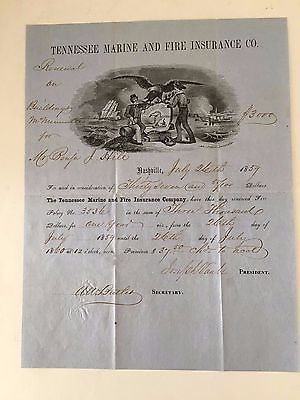 TENNESSEE MARINE AND FIRE INSURANCE CO.
Renewal
on
Buildings
McMinnville
for
$3000
J Hill
Nashville, July 26th 1859
For and in consideration of Thirty Seven Dollars,
The Tennessee Marine and Fire Insurance Company, have this day renewed Fire
Policy No. 3536 in the sum of Three Thousand
Dollars, for One Year viz., from the 26th day of
July 1859 until the 26th day of July
1860 at 12 o'clock, noon Premium $37
PRESIDENT.
SECRETARY.